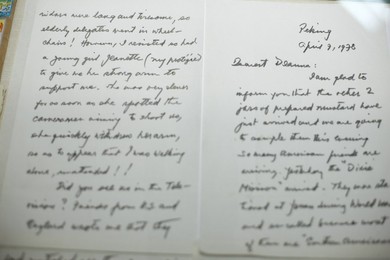 riders were long and tiresome, so
elderly delegates went in wheel-
chairs! However, I insisted we had
a young girl Jeanette (my protégée)
to give me her strong arm to
support me. She was very clever
for as soon as she spotted the
cameramen aiming to shoot us,
she quickly withdrew her arm,
so as to appear that I was walking
alone, unattended!!
Did you see us in the Tele-
vision? Friends from U.S and
England wrote me that they
Peking
April 7, 1978
Dearest Deanna:
I am glad to
inform you that the other 2
jars of prepared mustard have
just arrived and we are going
to sample them this evening
So many American friends are
arriving. Yesterday the "Dixie
Mission" arrived. They was sta-
tioned at Yenan during World War
and so called because most
of them are "Southern Americans